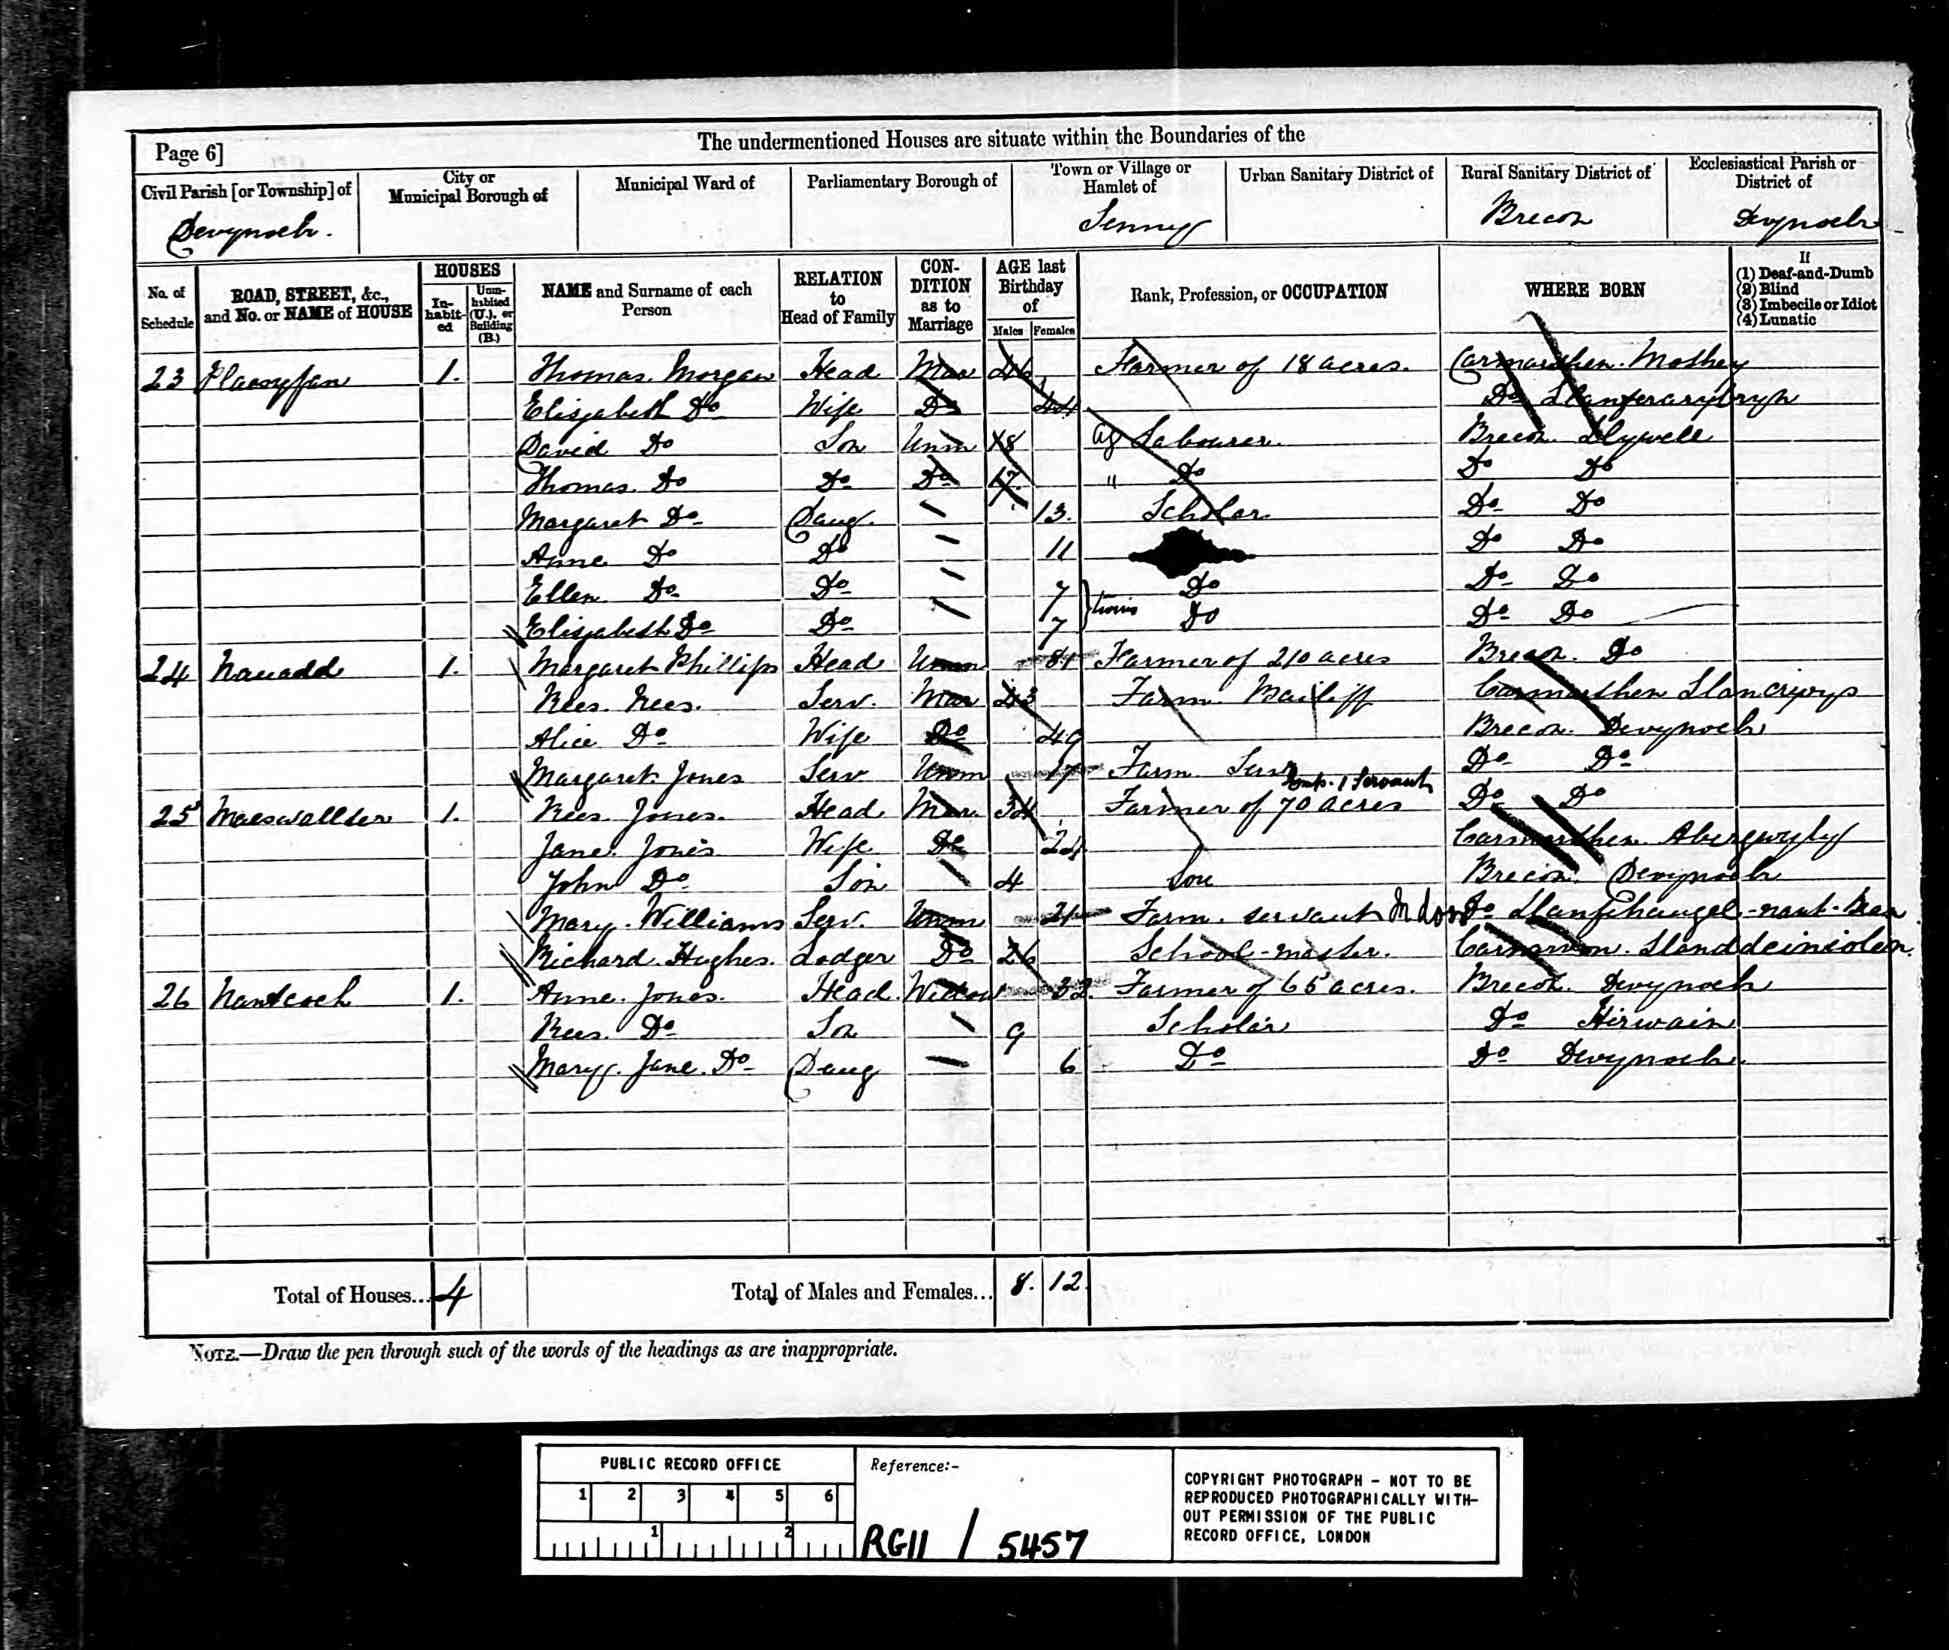 Page 6]
The undermentioned Houses are situate within the Boundaries of the
Civil Parish [or Township] of
City or Municipal Borough of
Municipal Ward of
Parliamentary Borough of
Town or Village or Hamlet of
Urban Sanitary District of
Rural Sanitary District of
Ecclesiastical Parish or District of
Devynock. Senny Brecon Devynock
No. of Schedule
ROAD, STREET, &c., and No. or NAME of HOUSE
HOUSES
Inhabited
Uninhabited (U.), or Building (B.)
NAME and Surname of each Person
RELATION to Head of Family
CONDITION as to Marriage
AGE last Birthday of
Males Females
Rank, Profession, or OCCUPATION
WHERE BORN
If
(1) Deaf-and-Dumb
(2) Blind
(3) Imbecile or Idiot
(4) Lunatic
23 1. Thomas Morgan Head Mar 46 Farmer of 18 acres. Carmarthen Mothey
Elizabeth Do Wife Do 44 Do
David Do Son Unm 18 Ag Labourer. Brecon Llywell
Thomas Do Do Do 17 " Do Do Do
Margaret Do Daug. 13. Scholar Do Do
Anne Do Do 11 Do Do
Ellen Do Do 7 } twins Do Do Do
Elizabeth Do Do 7 Do Do Do
24 1. Margaret Phillips Head Unm 81 Farmer of 210 acres Brecon Do
Rees Rees. Serv. Mar 43 Farm Bailiff Carmarthen Llancrwys
Alice Do Wife Do 49 Brecon Devynock
Margaret Jones Serv Unm 17 Farm Serv Do Do
25 1. Rees Jones. Head Mar. 34 Farmer of 70 acres 1 Servant Do Do
Jane Jones Wife Do Carmarthen Abergwyly
John Do Son 4 Son Brecon Devynock
Mary Williams Serv. Unm 21 Farm servant Indoor Do Llanfihangel-nant-Bran
Richard Hughes. Lodger Do 26 School-master. Carnarvon. Llanddeiniolen.
26 Nantcoch 1. Anne Jones. Head Widow 32. Farmer of 65 acres. Brecon Devynock
Rees Do Son 9 Scholar Do Hirwain
Mary Jane Do Daug 6 Do Do Devynock
Total of Houses... 4
Total of Males and Females... 8. 12
NOTE.—Draw the pen through such of the words of the headings as are inappropriate.
PUBLIC RECORD OFFICE
1 2 3 4 5 6
1 2
Reference:-
RG11 / 5457
COPYRIGHT PHOTOGRAPH - NOT TO BE
REPRODUCED PHOTOGRAPHICALLY WITH-
OUT PERMISSION OF THE PUBLIC
RECORD OFFICE, LONDON